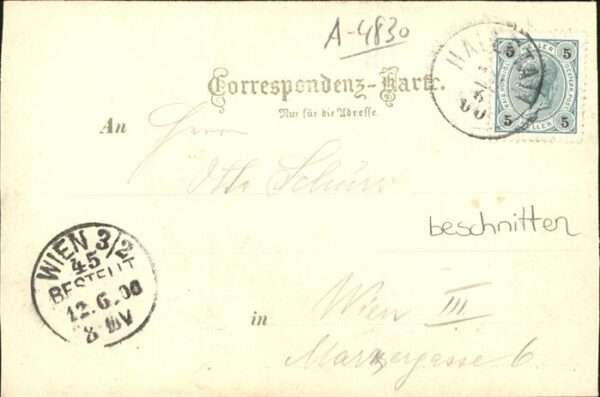 A-4830
HALLSTATT
00
5 HELLER 5
5 HELLER 5
Correspondenz-Karte.
Nur für die Adresse.
An Herrn
Otto
beschnitten
WIEN 3/2
45
BESTELLT
12.6.00
8 V
in Wien III
Marxergasse 6